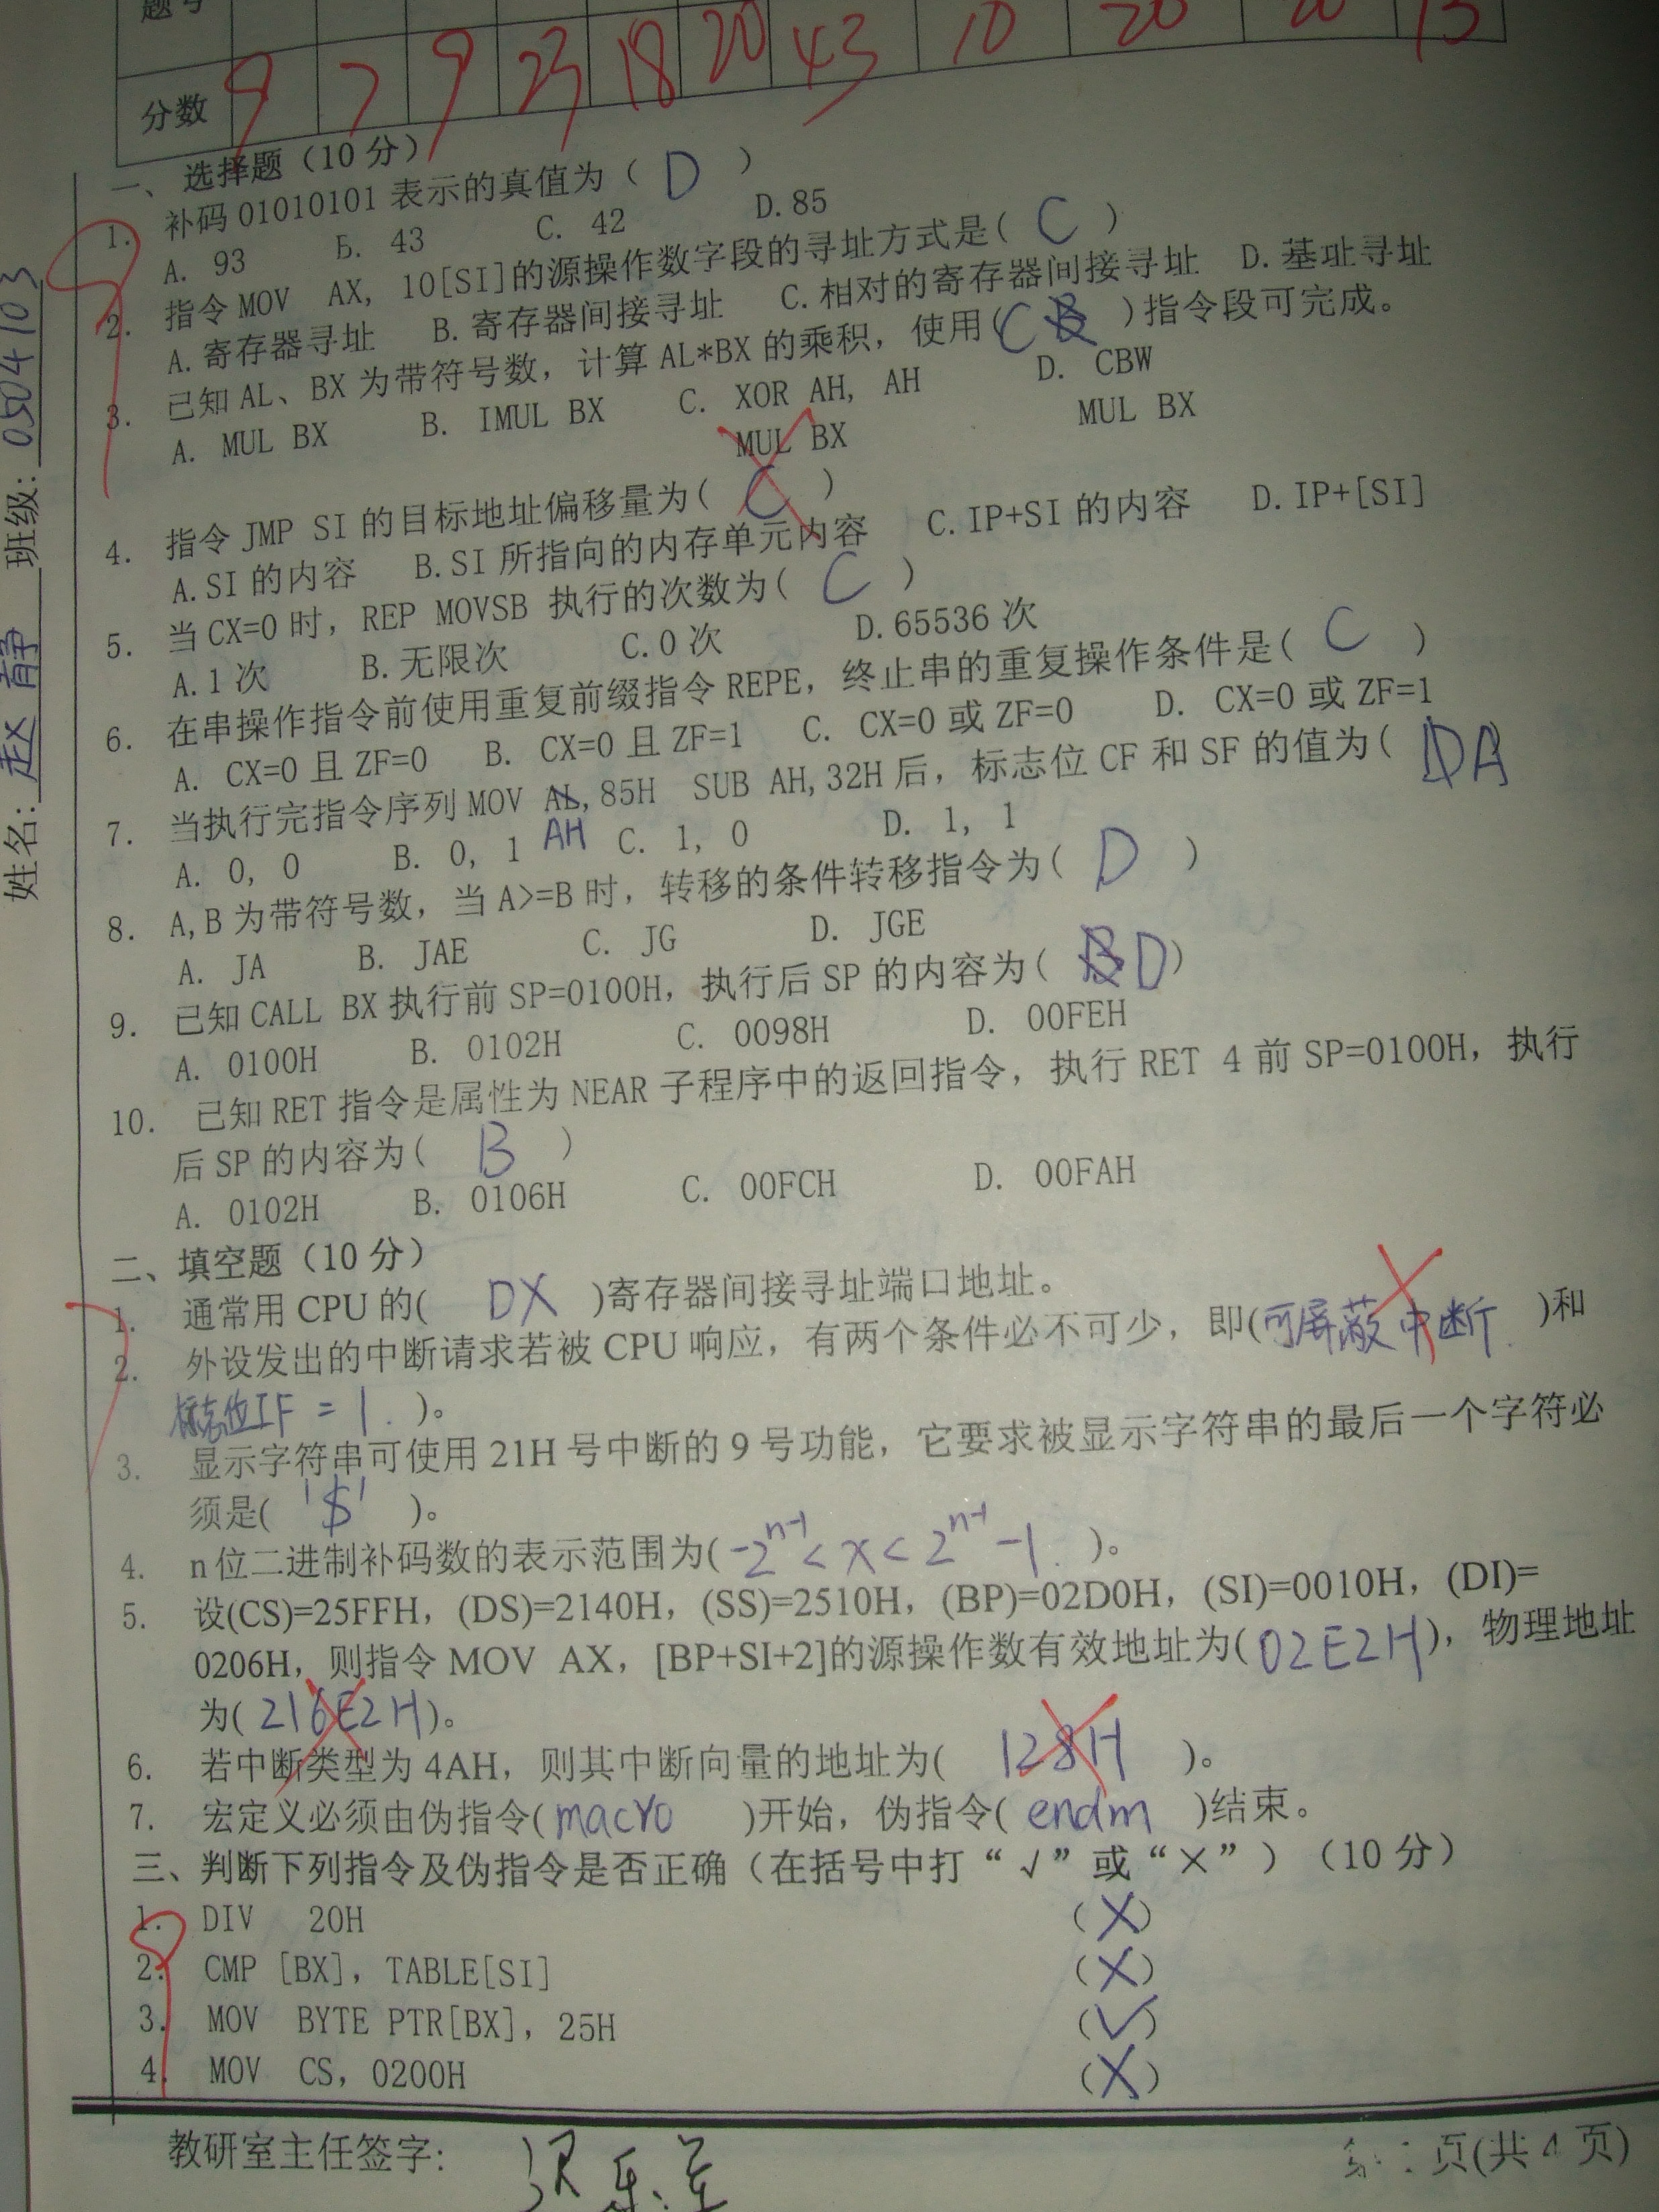 题号
分数 9 7 9 23 18 20 43 10 20 20 15
一、选择题（10分）
1. 补码01010101表示的真值为（ D ）
A. 93 B. 43 C. 42 D.85
2. 指令MOV AX, 10[SI]的源操作数字段的寻址方式是( C )
A.寄存器寻址 B.寄存器间接寻址 C.相对的寄存器间接寻址 D.基址寻址
3. 已知AL、BX为带符号数，计算AL*BX的乘积，使用( C )指令段可完成。
A. MUL BX B. IMUL BX C. XOR AH, AH D. CBW
MUL BX MUL BX
4. 指令JMP SI的目标地址偏移量为( C )
A.SI的内容 B.SI所指向的内存单元内容 C.IP+SI的内容 D.IP+[SI]
5. 当CX=0时，REP MOVSB 执行的次数为( C )
A.1次 B.无限次 C.0次 D.65536次
6. 在串操作指令前使用重复前缀指令REPE，终止串的重复操作条件是( C )
A. CX=0且ZF=0 B. CX=0且ZF=1 C. CX=0或ZF=0 D. CX=0或ZF=1
7. 当执行完指令序列MOV AL,85H SUB AH,32H后，标志位CF和SF的值为( DA
A. 0, 0 B. 0, 1 AH C. 1, 0 D. 1, 1
8. A,B为带符号数，当A>=B时，转移的条件转移指令为( D )
A. JA B. JAE C. JG D. JGE
9. 已知CALL BX执行前SP=0100H，执行后SP的内容为( B D )
A. 0100H B. 0102H C. 0098H D. 00FEH
10. 已知RET指令是属性为NEAR子程序中的返回指令，执行RET 4前SP=0100H，执行
后SP的内容为( B )
A. 0102H B. 0106H C. 00FCH D. 00FAH
二、填空题（10分）
1. 通常用CPU的( DX )寄存器间接寻址端口地址。
2. 外设发出的中断请求若被CPU响应，有两个条件必不可少，即(可屏蔽中断 )和
标志位IF = 1. )。
3. 显示字符串可使用21H号中断的9号功能，它要求被显示字符串的最后一个字符必
须是( '$' )。
4. n位二进制补码数的表示范围为( -2^n-1 < x < 2^n-1 -1. )。
5. 设(CS)=25FFH，(DS)=2140H，(SS)=2510H，(BP)=02D0H，(SI)=0010H，(DI)=
0206H，则指令MOV AX，[BP+SI+2]的源操作数有效地址为( 02E2H )，物理地址
为( 216E2H )。
6. 若中断类型为4AH，则其中断向量的地址为( 128H )。
7. 宏定义必须由伪指令( macro )开始，伪指令( endm )结束。
三、判断下列指令及伪指令是否正确（在括号中打“√”或“×”）（10分）
1. DIV 20H (×)
2. CMP [BX], TABLE[SI] (×)
3. MOV BYTE PTR[BX], 25H (√)
4. MOV CS, 0200H (×)
教研室主任签字:
页(共4页)
姓名: 赵静 班级: 0504103